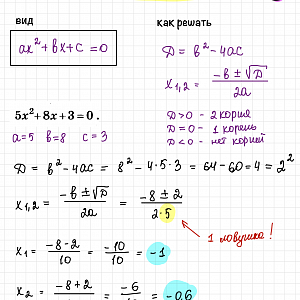 вид
как решать
ax² + bx + c = 0
D = b² - 4ac
x₁,₂ = (-b ± √D) / 2a
D > 0 - 2 корня
D = 0 - 1 корень
D < 0 - нет корней
5x² + 8x + 3 = 0.
a = 5 b = 8 c = 3
D = b² - 4ac = 8² - 4·5·3 = 64 - 60 = 4 = 2²
x₁,₂ = (-b ± √D) / 2a = (-8 ± 2) / 2·5
1 ловушка!
x₁ = (-8 - 2) / 10 = -10 / 10 = -1
x₂ = (-8 + 2) / 10 = -6 / 10 = -0,6